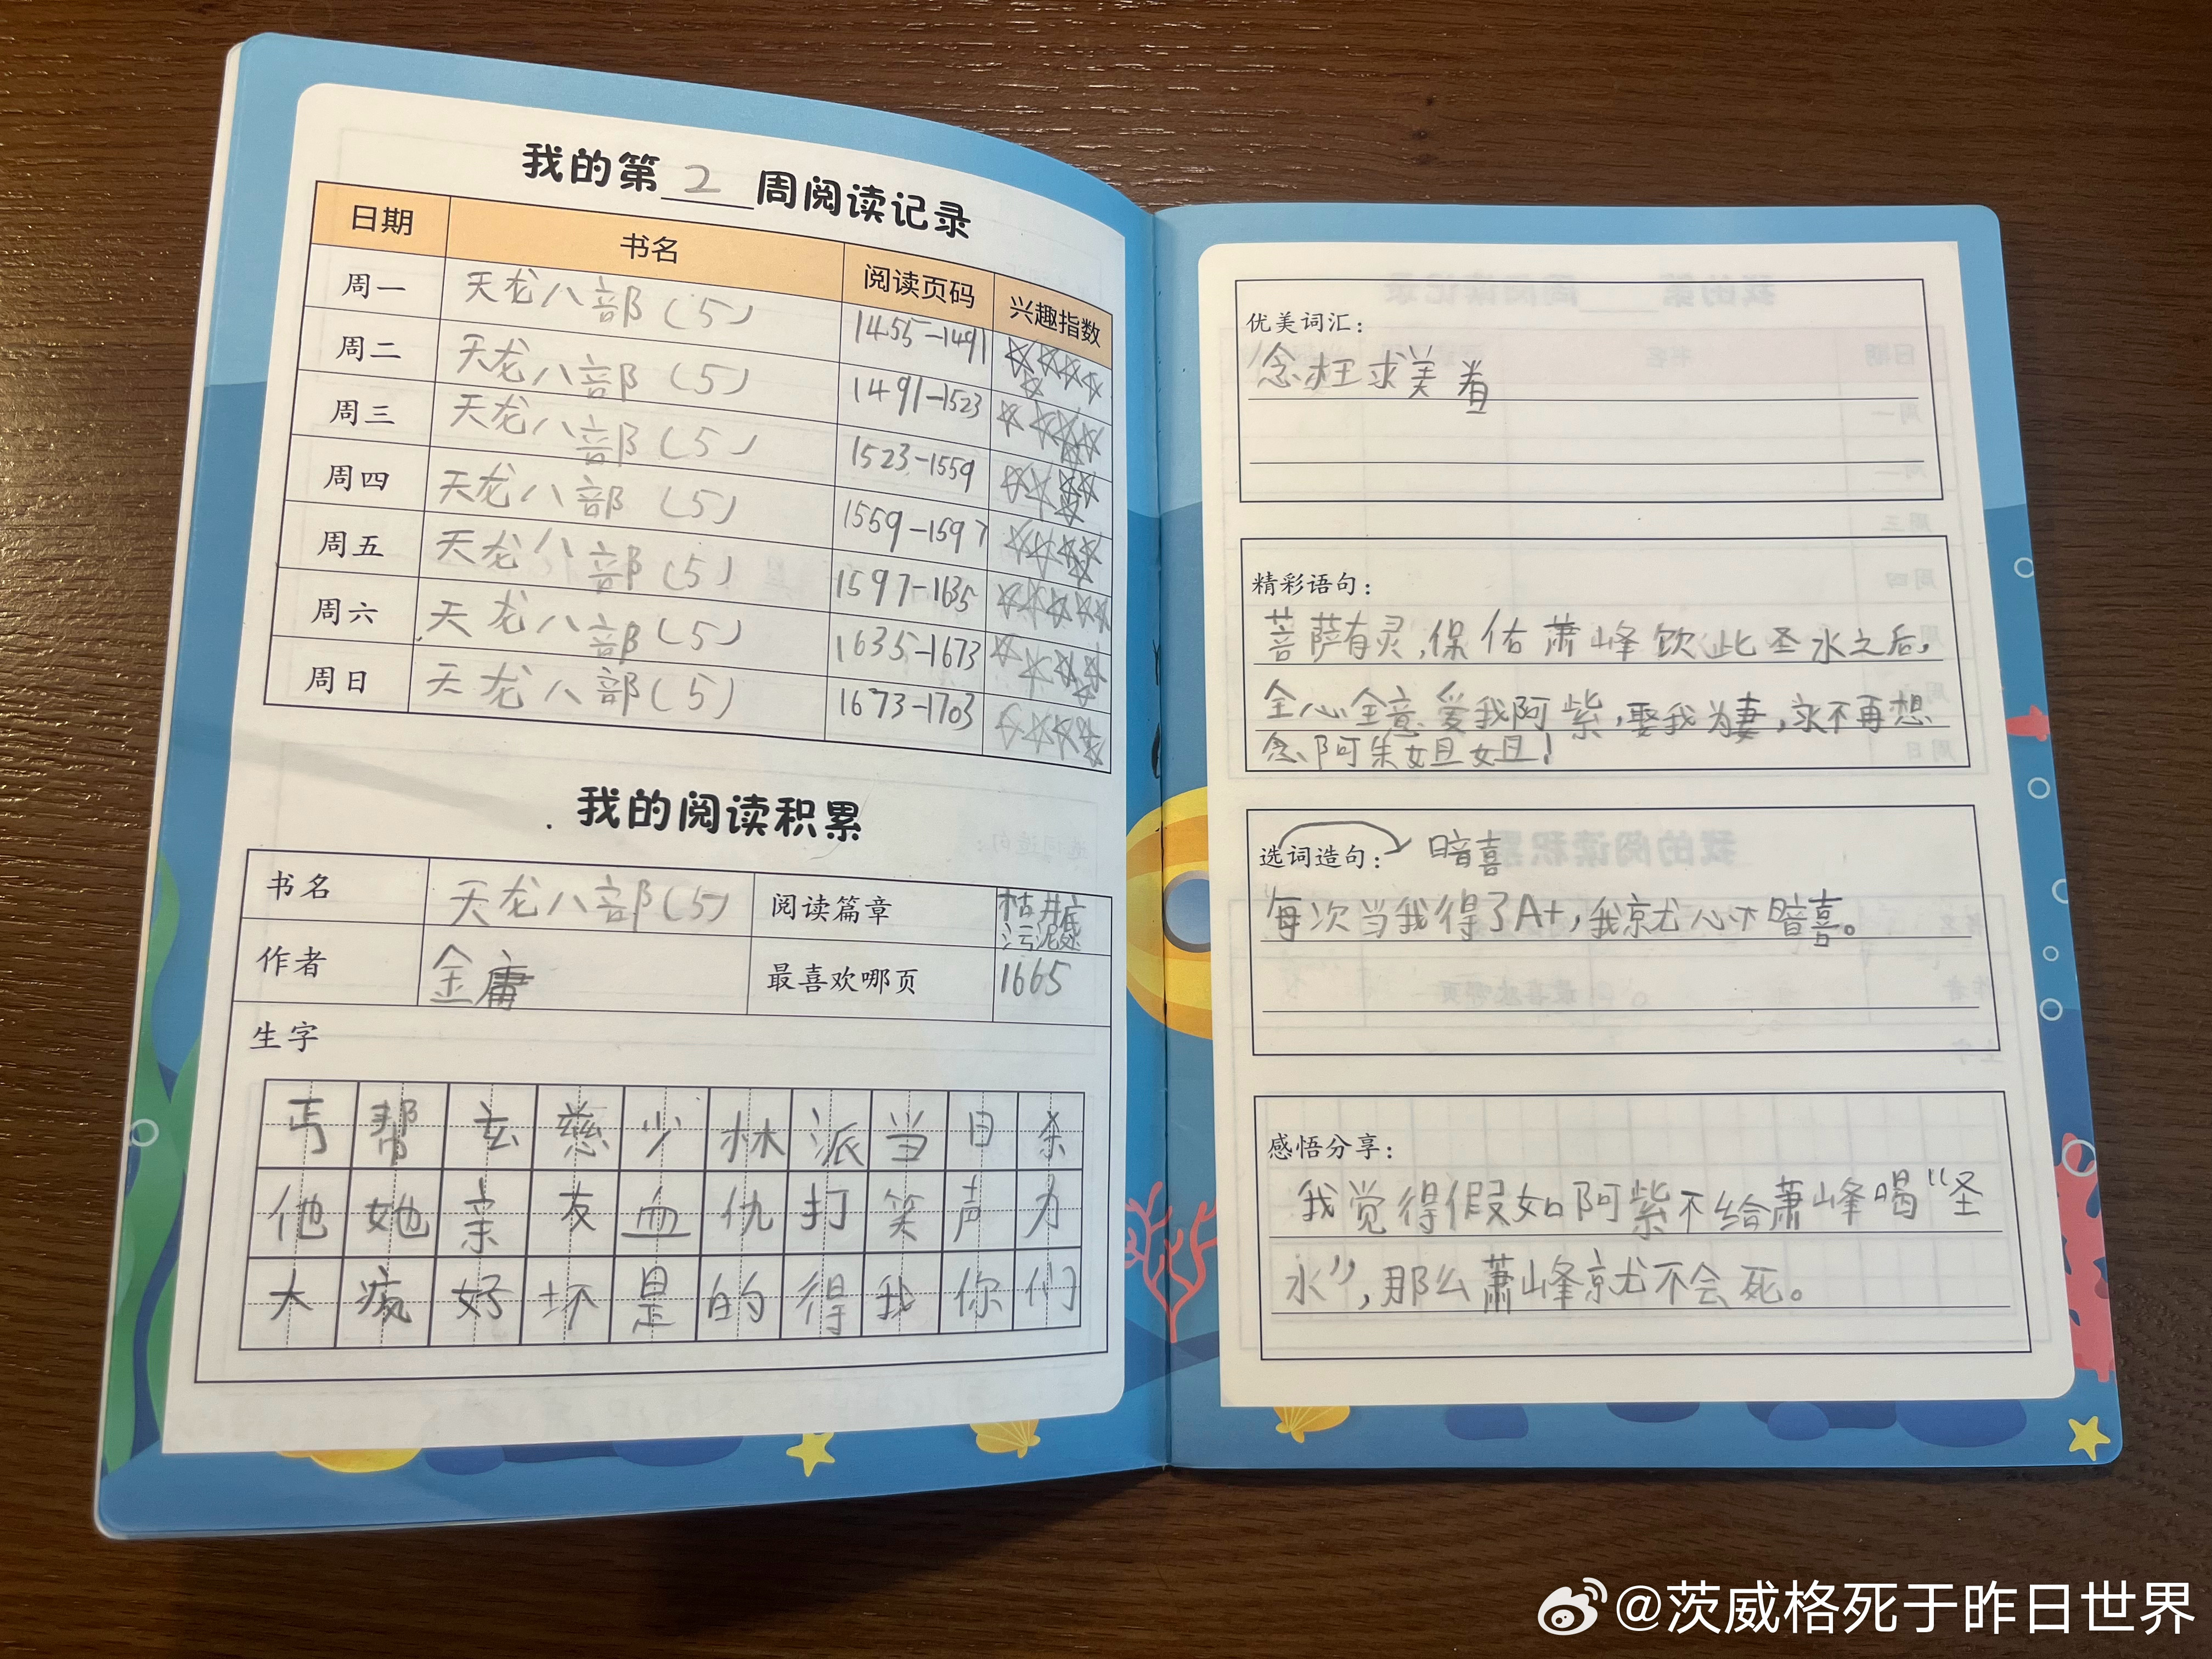 我的第2周阅读记录
日期 书名 阅读页码 兴趣指数
周一 天龙八部（5） 1455-1491
周二 天龙八部（5） 1491-1523
周三 天龙八部（5） 1523-1559
周四 天龙八部（5） 1559-1597
周五 天龙八部（5） 1597-1635
周六 天龙八部（5） 1635-1673
周日 天龙八部（5） 1673-1703
我的阅读积累
书名 天龙八部（5） 阅读篇章 枯井底
污泥处
作者 金庸 最喜欢哪页 1665
生字
丐帮玄慈少林派当日杀
他她亲友血仇打笑声力
大疯好坏是的得我你们
优美词汇：
念枉求美眷
精彩语句：
菩萨有灵，保佑萧峰饮此圣水之后，
全心全意爱我阿紫，娶我为妻，永不再想
念阿朱姐姐！
选词造句： 暗喜
每次当我得了A+，我就心中暗喜。
感悟分享：
我觉得假如阿紫不给萧峰喝“圣
水”，那么萧峰就不会死。
@茨威格死于昨日世界